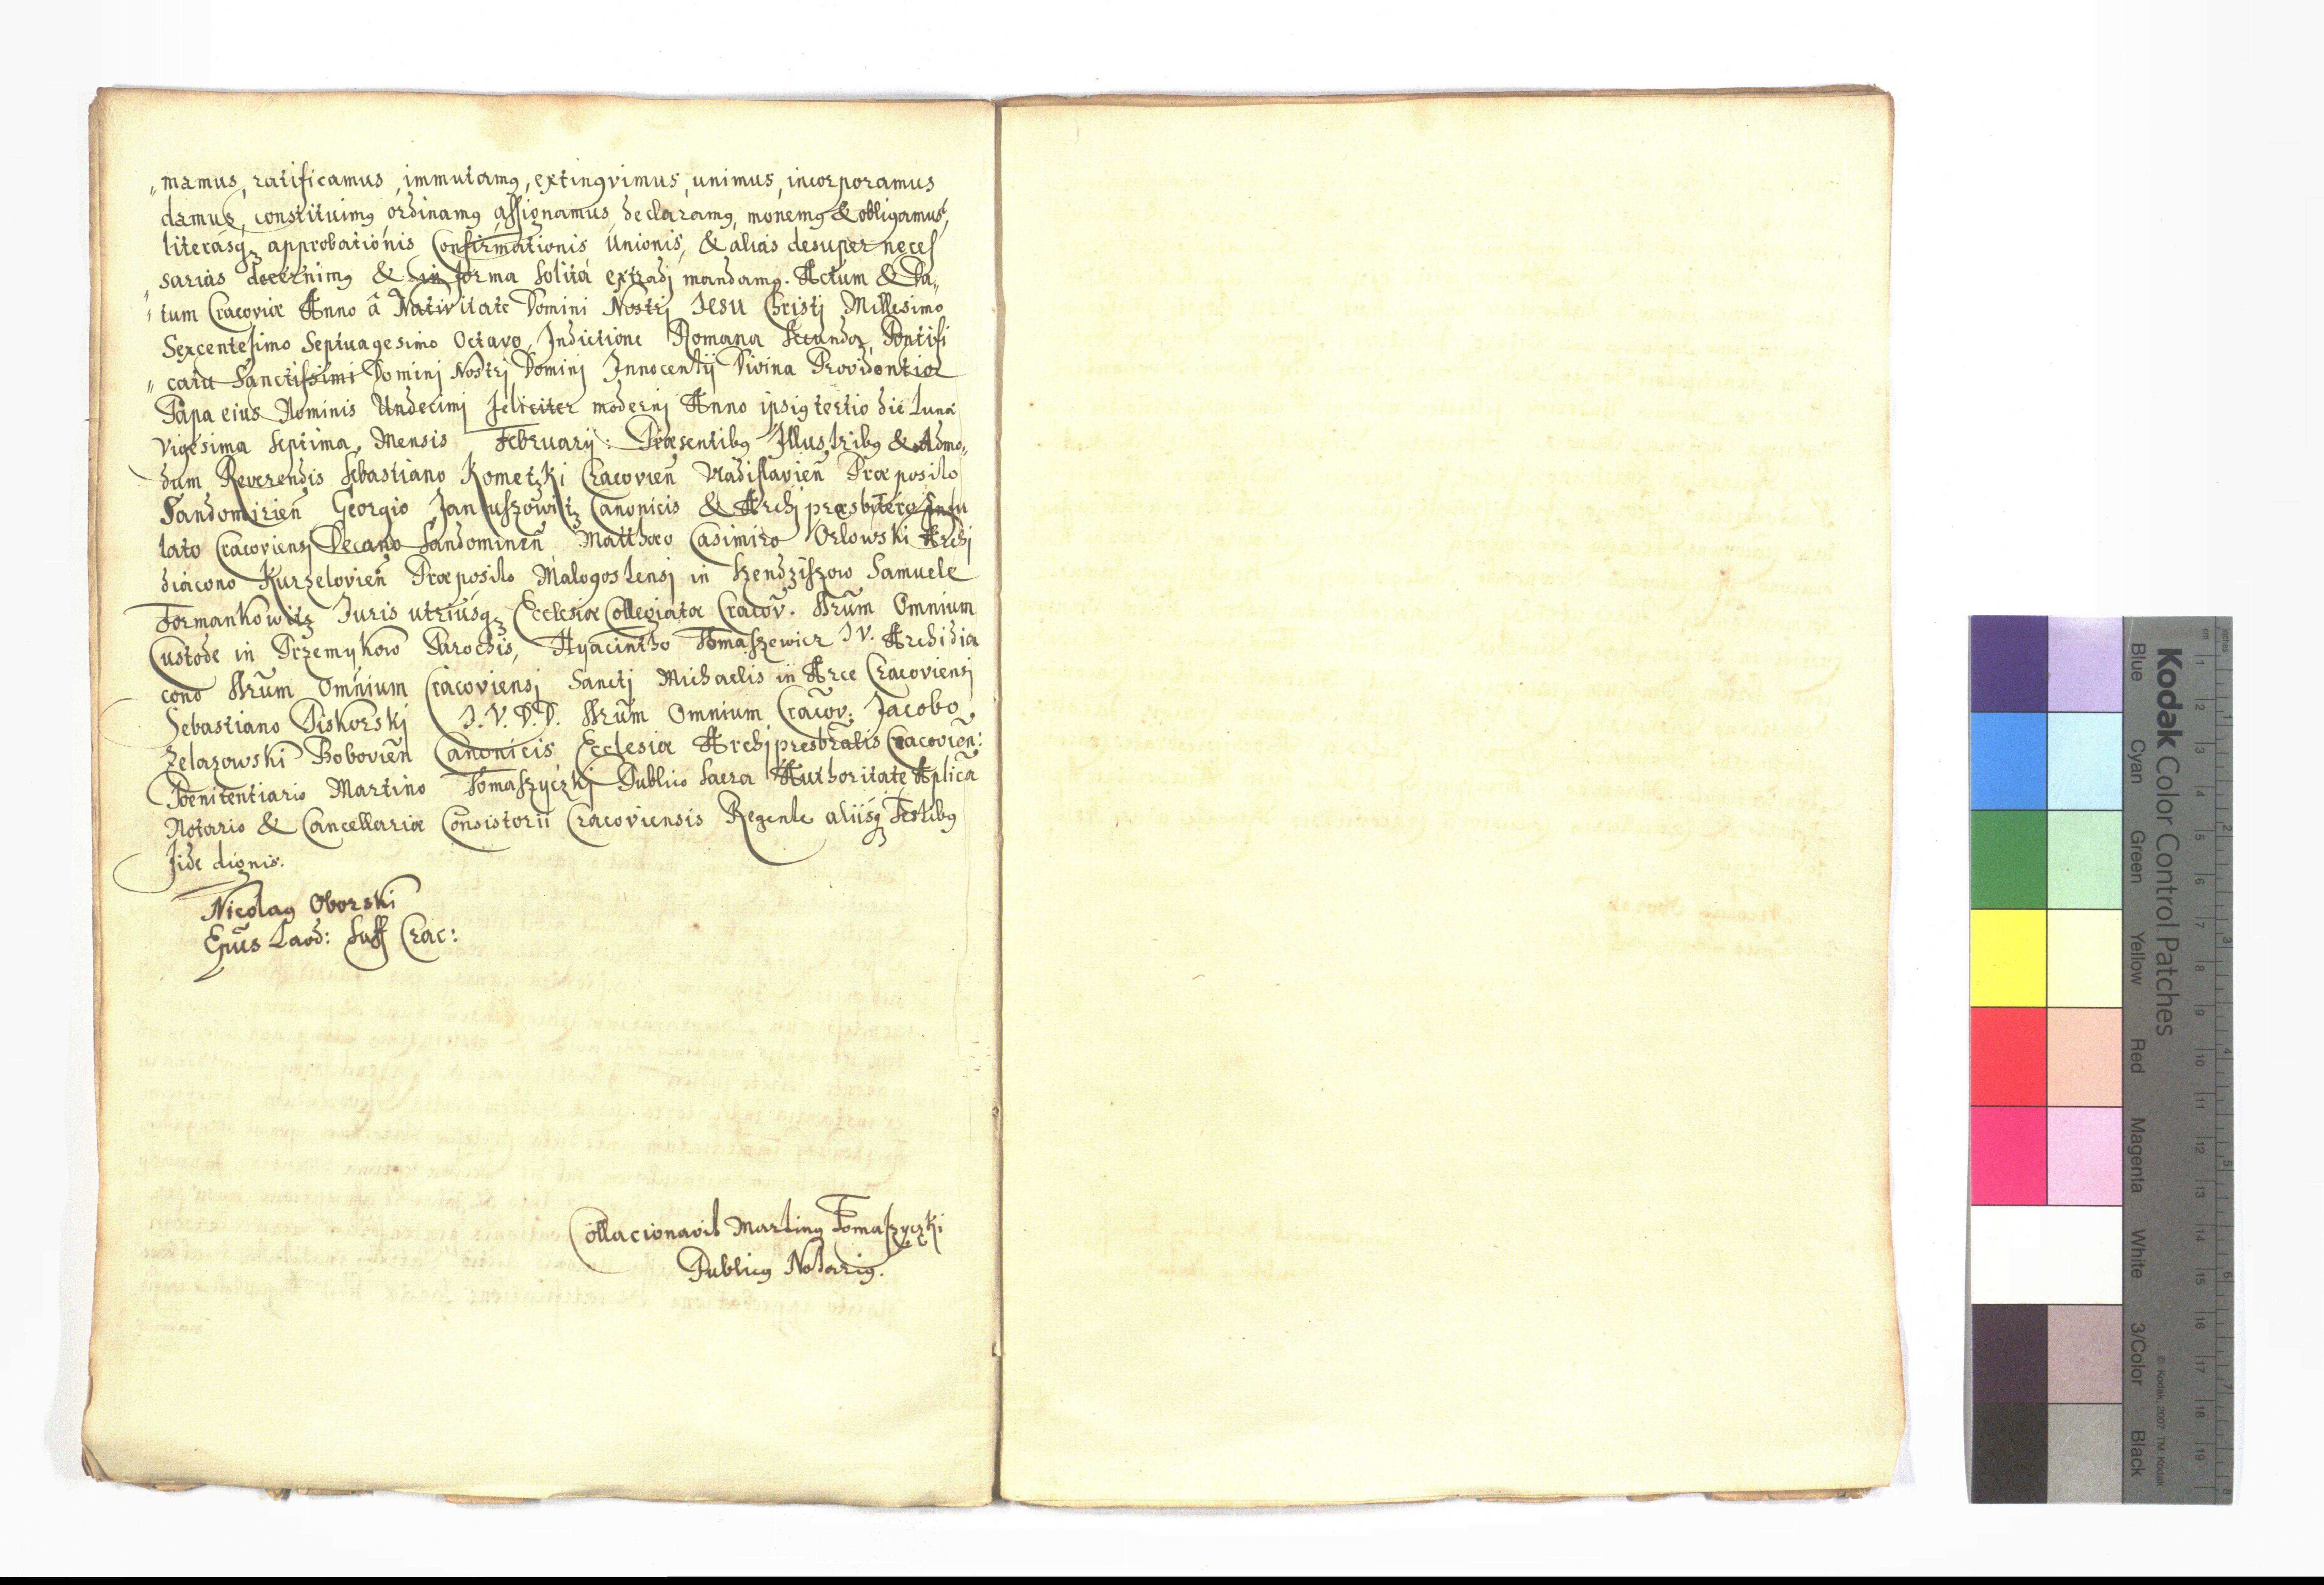 „mamus, ratificamus, immutamꝰ, extingvimus, unimus, incorporamus
damus, constituimꝰ, ordinamꝰ, assignamus, declaramꝰ, monemꝰ & obligamus,
literasqꝫ approbationis Confirmationis Unionis, & alias desuper neces
„sarias decernimꝰ & in forma solita extradj mandamꝰ. Actum & Da„
„tum Cracoviæ Anno â Nativitate Domini Nostrj JESU Christj Millesimo
Sexcentesimo Septuagesimo Octavo, Indictione Romana Secunda, Pontifi
„catu Sanctissimi Dominj Nostrj Dominj Innocentij Divina Providentia
Papa eius Nominis Undecimj feliciter modernj Anno ipsiꝰ tertio die Luna
vigesima septima, Mensis Februarij: Præsentibꝰ Illustribꝰ & Admo„
dum Reverendis Sebastiano Kometzki Cracovień Vladislavień Præposito
Sandomirień Georgio Januszowitz Canonicis & Archjpræsbitero Infu
lato Cracoviensj Decano Sandominen̄ Matthæo Casimiro Orlowski Archj
diacono Kurzelovień Præposito Malogostensj in Szendziszow Samuele
Formankowitz Juris utriusqꝫ Ecclesiæ Collegiatæ Cracov̄. SSrūm Omnium
Custode in Przemykow Parochis, Hyacintho Tomaszewicz J V. Archidia
cono SSrūm Omnium Cracoviensj Sanctj Michaelis in Arce Cracoviensj
Sebastiano Piskorskj J.V.D.D. SSrūm Omnium Cracov̄: Jacobo
Zelazowski Bobovień Canonicis, Ecclesiæ Archjpresbrālis Cracovień:
Pœnitentiario Martino Tomaszyczkj Publico Sacra Authoritate Aplicā
Notario & Cancellariæ Consistorii Cracoviensis Regente aliisqꝫ Testibꝰ
fide dignis.
Nicolaꝰ Oborski
Epūs Laod: Suff Crac:
Collacionavit Martinꝰ Tomaszyczki
Publicꝰ Notariꝰ.
Kodak Color Control Patches
Blue
Cyan
Green
Yellow
Red
Magenta
White
3/Color
Black
© Kodak, 2007 TM: Kodak
inches
cm
1 2 3 4 5 6 7 8 9 10 11 12 13 14 15 16 17 18 19
1 2 3 4 5 6 7 8